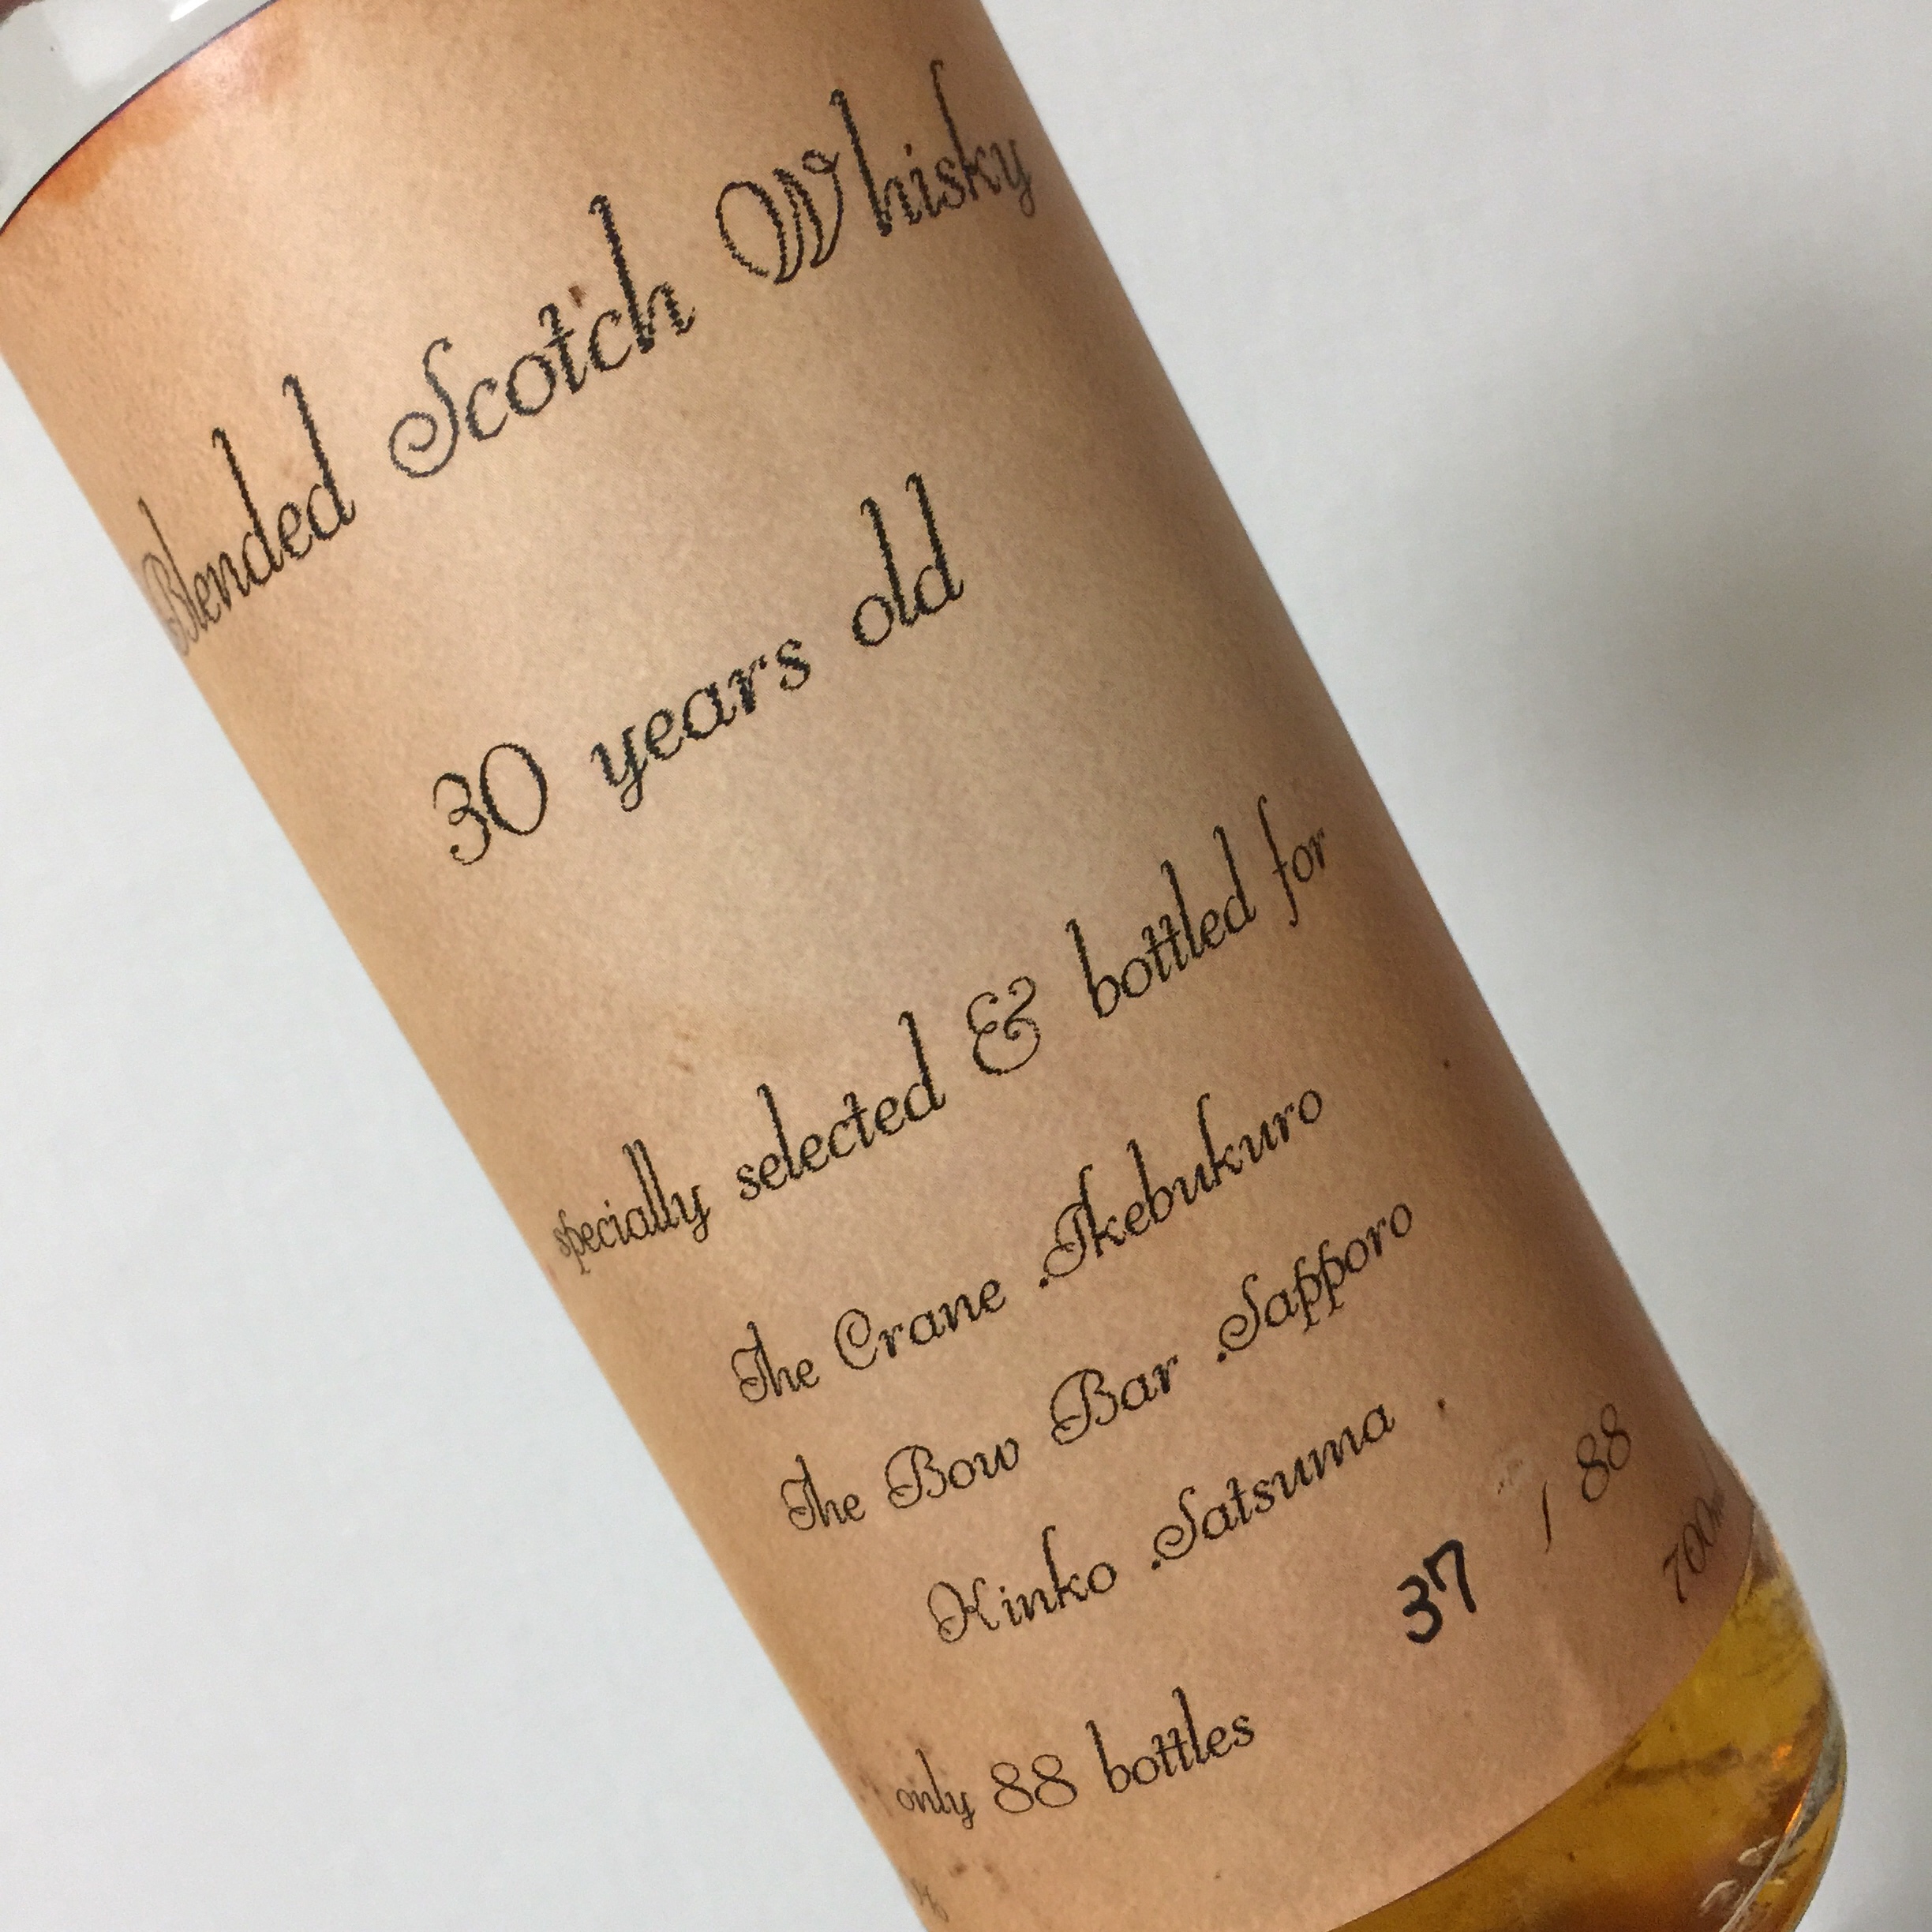 Blended Scotch Whisky
30 years old
specially selected & bottled for
The Crane .Ikebukuro
The Bow Bar .Sapporo
Kinko .Satsuma
37 / 88
only 88 bottles
700ml